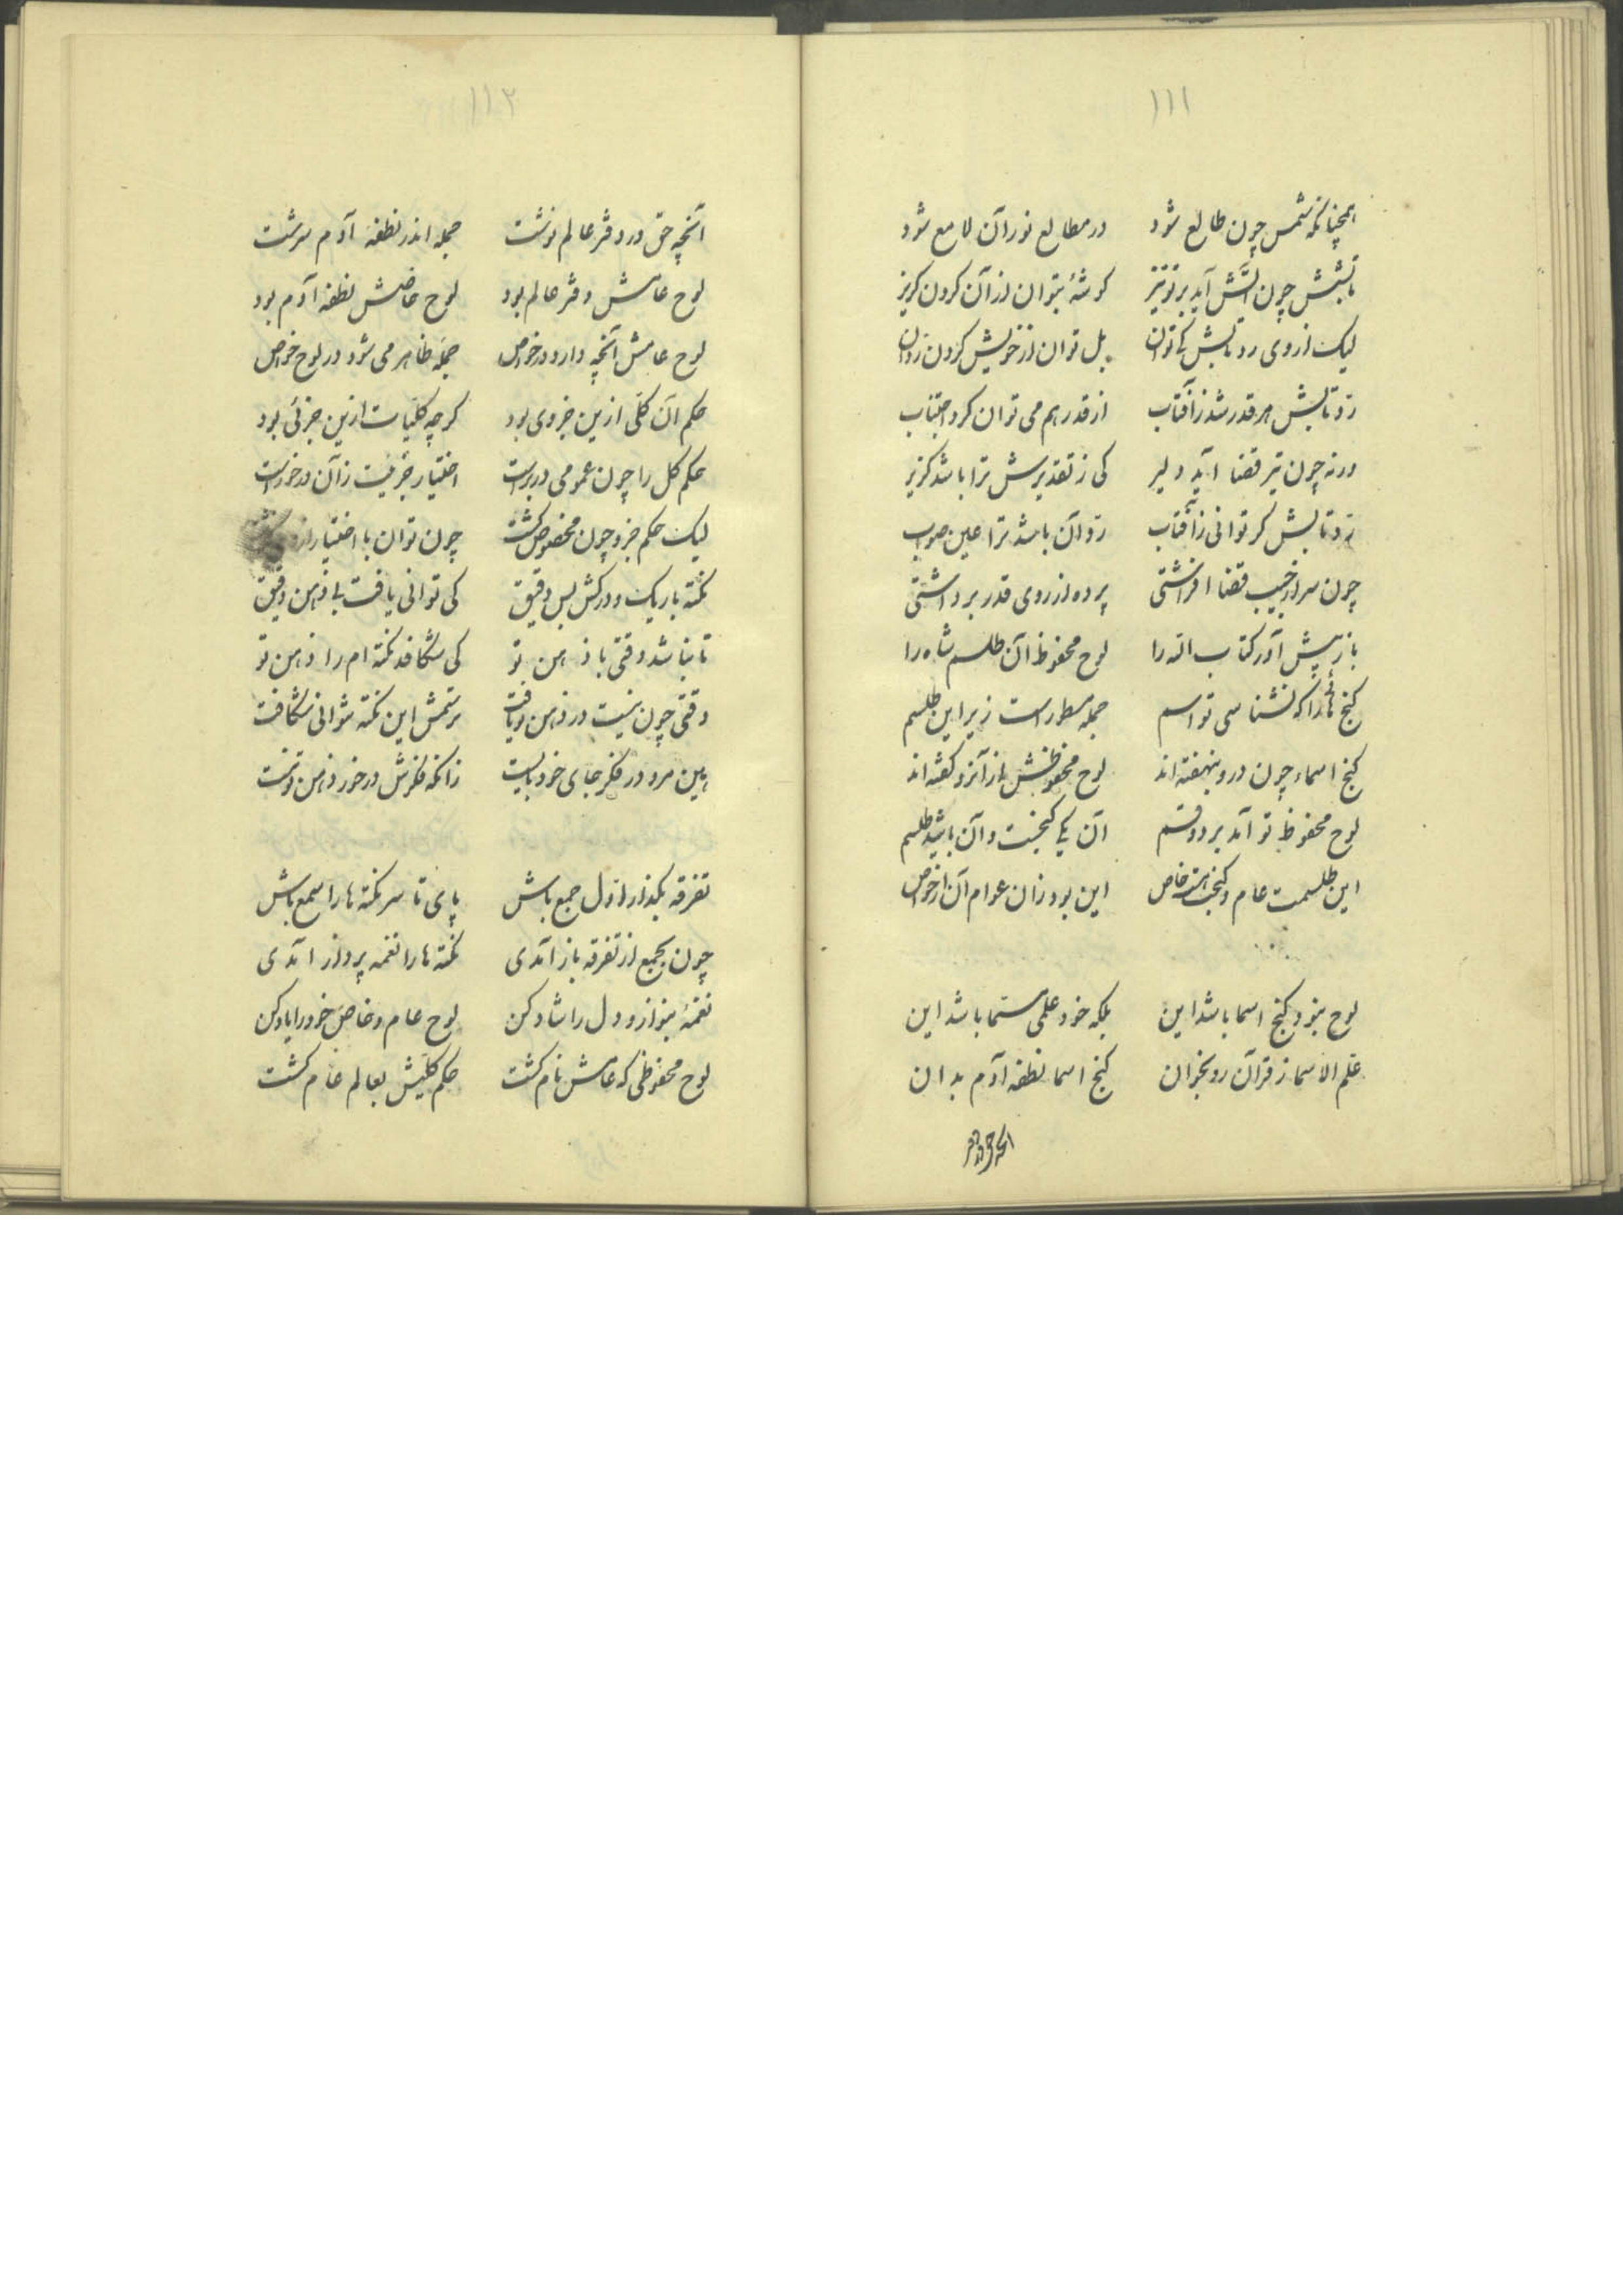 ۱۱۱
همچنانکه شمس چون طالع شود در مطالع نور آن لامع شود
تابشش چون آتش آید بر تو تیز گوشهٔ بتوان از آن کردن گریز
لیک از وی رد تابش کی توان بل توان از خویش کردن رد آن
رد تابش هر قدر شد ز آفتاب از قدر هم می توان کرد اجتناب
ورنه چون تیر قضا آید دلیر کی ز تقدیرش ترا باشد گزیر
رد تابش گر توانی ز آفتاب رد آن باشد ترا عین صواب
چون سر از جیب قضا افراشتی پرده از روی قدر برداشتی
باز پیش آور کتاب الله را لوح محفوظ آن طلسم شاه را
گنج را که نشناسی تو اسم جمله مسطور است زیر این طلسم
گنج اسماء چون درو بنهفته اند لوح محفوظش از آنرو گفته اند
لوح محفوظ تو آمد بر دو قسم آن یکی گنجست و آن باشد طلسم
این طلسمت عام و گنجت هست خاص این بود زان عوام آن از خواص
لوح نبود گنج اسما باشد این بلکه خود علم مسما باشد این
علم الاسما ز قرآن رو بخوان گنج اسما نطفه آدم بدان
آنچه حق در دفتر
۱۱۲
آنچه حق در دفتر عالم نوشت جمله اندر نطفه آدم سرشت
لوح عامش دفتر عالم بود لوح خاصش نطفه آدم بود
لوح عامش آنچه دارد در خواص جمله ظاهر می شود در لوح خواص
حکم آن کلی ازین جزوی بود گرچه کلیات ازین جزئی بود
حکم کل را چون عمومی در برست اختیار جزئیت زآن درخورست
لیک حکم جزو چون مخصوص گشت چون توان با اختیار از
نکته باریک و درکش بس دقیق کی توانی یافت بی ذهن دقیق
تا نباشد دقتی با ذهن تو کی شکافد نکته ام را ذهن تو
دقتی چون نیست در ذهن تو یافت پرسمش این نکته نتوانی شکافت
همین مرو در فکر جای خود بایست زانکه فکرش درخور ذهن تو نیست
تفرقه بگذار از دل جمع باش پای تا سر نکته ها را سمع باش
چون بجمع از تفرقه باز آمدی نکته ها را نغمه پرداز آمدی
نغمهٔ بنواز و دل را شاد کن لوح عام و خاص خود را یاد کن
لوح محفوظی که عامش نام گشت حکم کلیش بعالم عام گشت